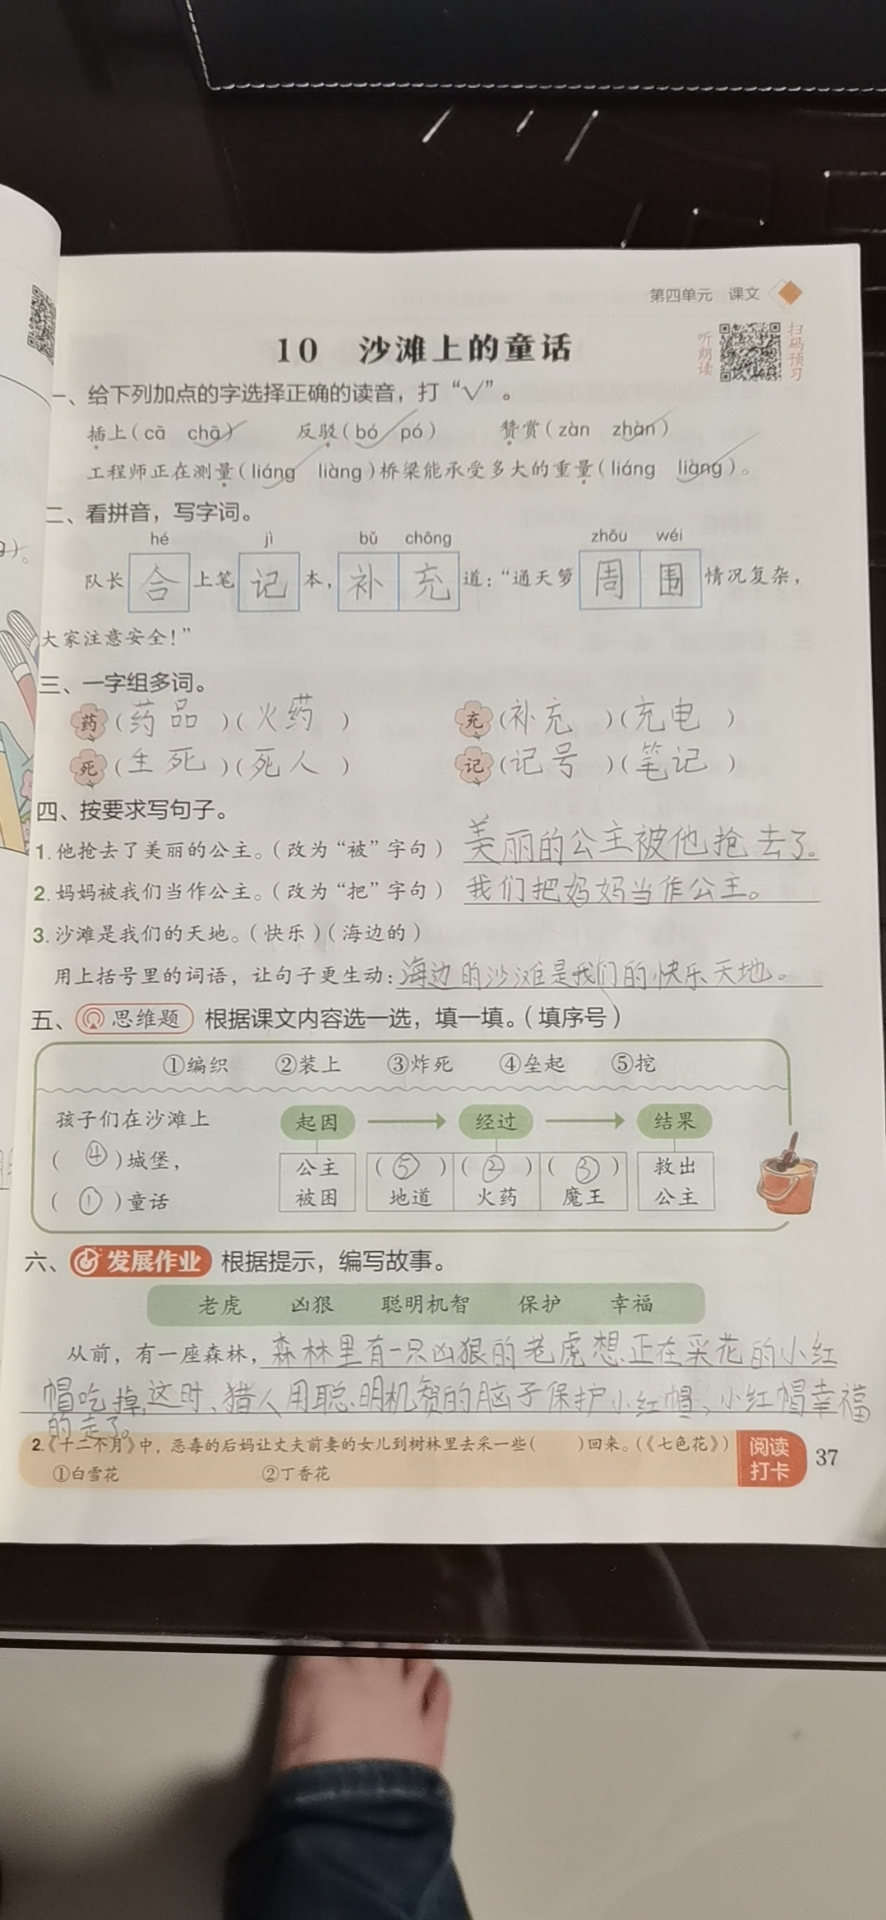 第四单元 课文
10 沙滩上的童话
听朗读
扫码预习
一、给下列加点的字选择正确的读音，打“√”。
插上(cā chā) 反驳(bó pó) 赞赏(zàn zhàn)
工程师正在测量(liáng liàng)桥梁能承受多大的重量(liáng liàng)。
二、看拼音，写字词。
hé jì bǔ chōng zhōu wéi
队长合上笔记本，补充道：“通天箩周围情况复杂，
大家注意安全！”
三、一字组多词。
药(药品)(火药) 充(补充)(充电)
死(生死)(死人) 记(记号)(笔记)
四、按要求写句子。
1.他抢去了美丽的公主。(改为“被”字句) 美丽的公主被他抢去了。
2.妈妈被我们当作公主。(改为“把”字句) 我们把妈妈当作公主。
3.沙滩是我们的天地。(快乐)(海边的)
用上括号里的词语，让句子更生动：海边的沙滩是我们的快乐天地。
五、思维题 根据课文内容选一选，填一填。(填序号)
①编织 ②装上 ③炸死 ④垒起 ⑤挖
孩子们在沙滩上 起因 经过 结果
(④)城堡， 公主 (⑤) (②) (③) 救出
(①)童话 被困 地道 火药 魔王 公主
六、发展作业 根据提示，编写故事。
老虎 凶狠 聪明机智 保护 幸福
从前，有一座森林，森林里有一只凶狠的老虎想正在采花的小红
帽吃掉，这时、猎人用聪明机智的脑子保护小红帽、小红帽幸福
的走了。
2.《十二个月》中，恶毒的后妈让丈夫前妻的女儿到树林里去采一些( )回来。(《七色花》)
①白雪花 ②丁香花
阅读
打卡
37